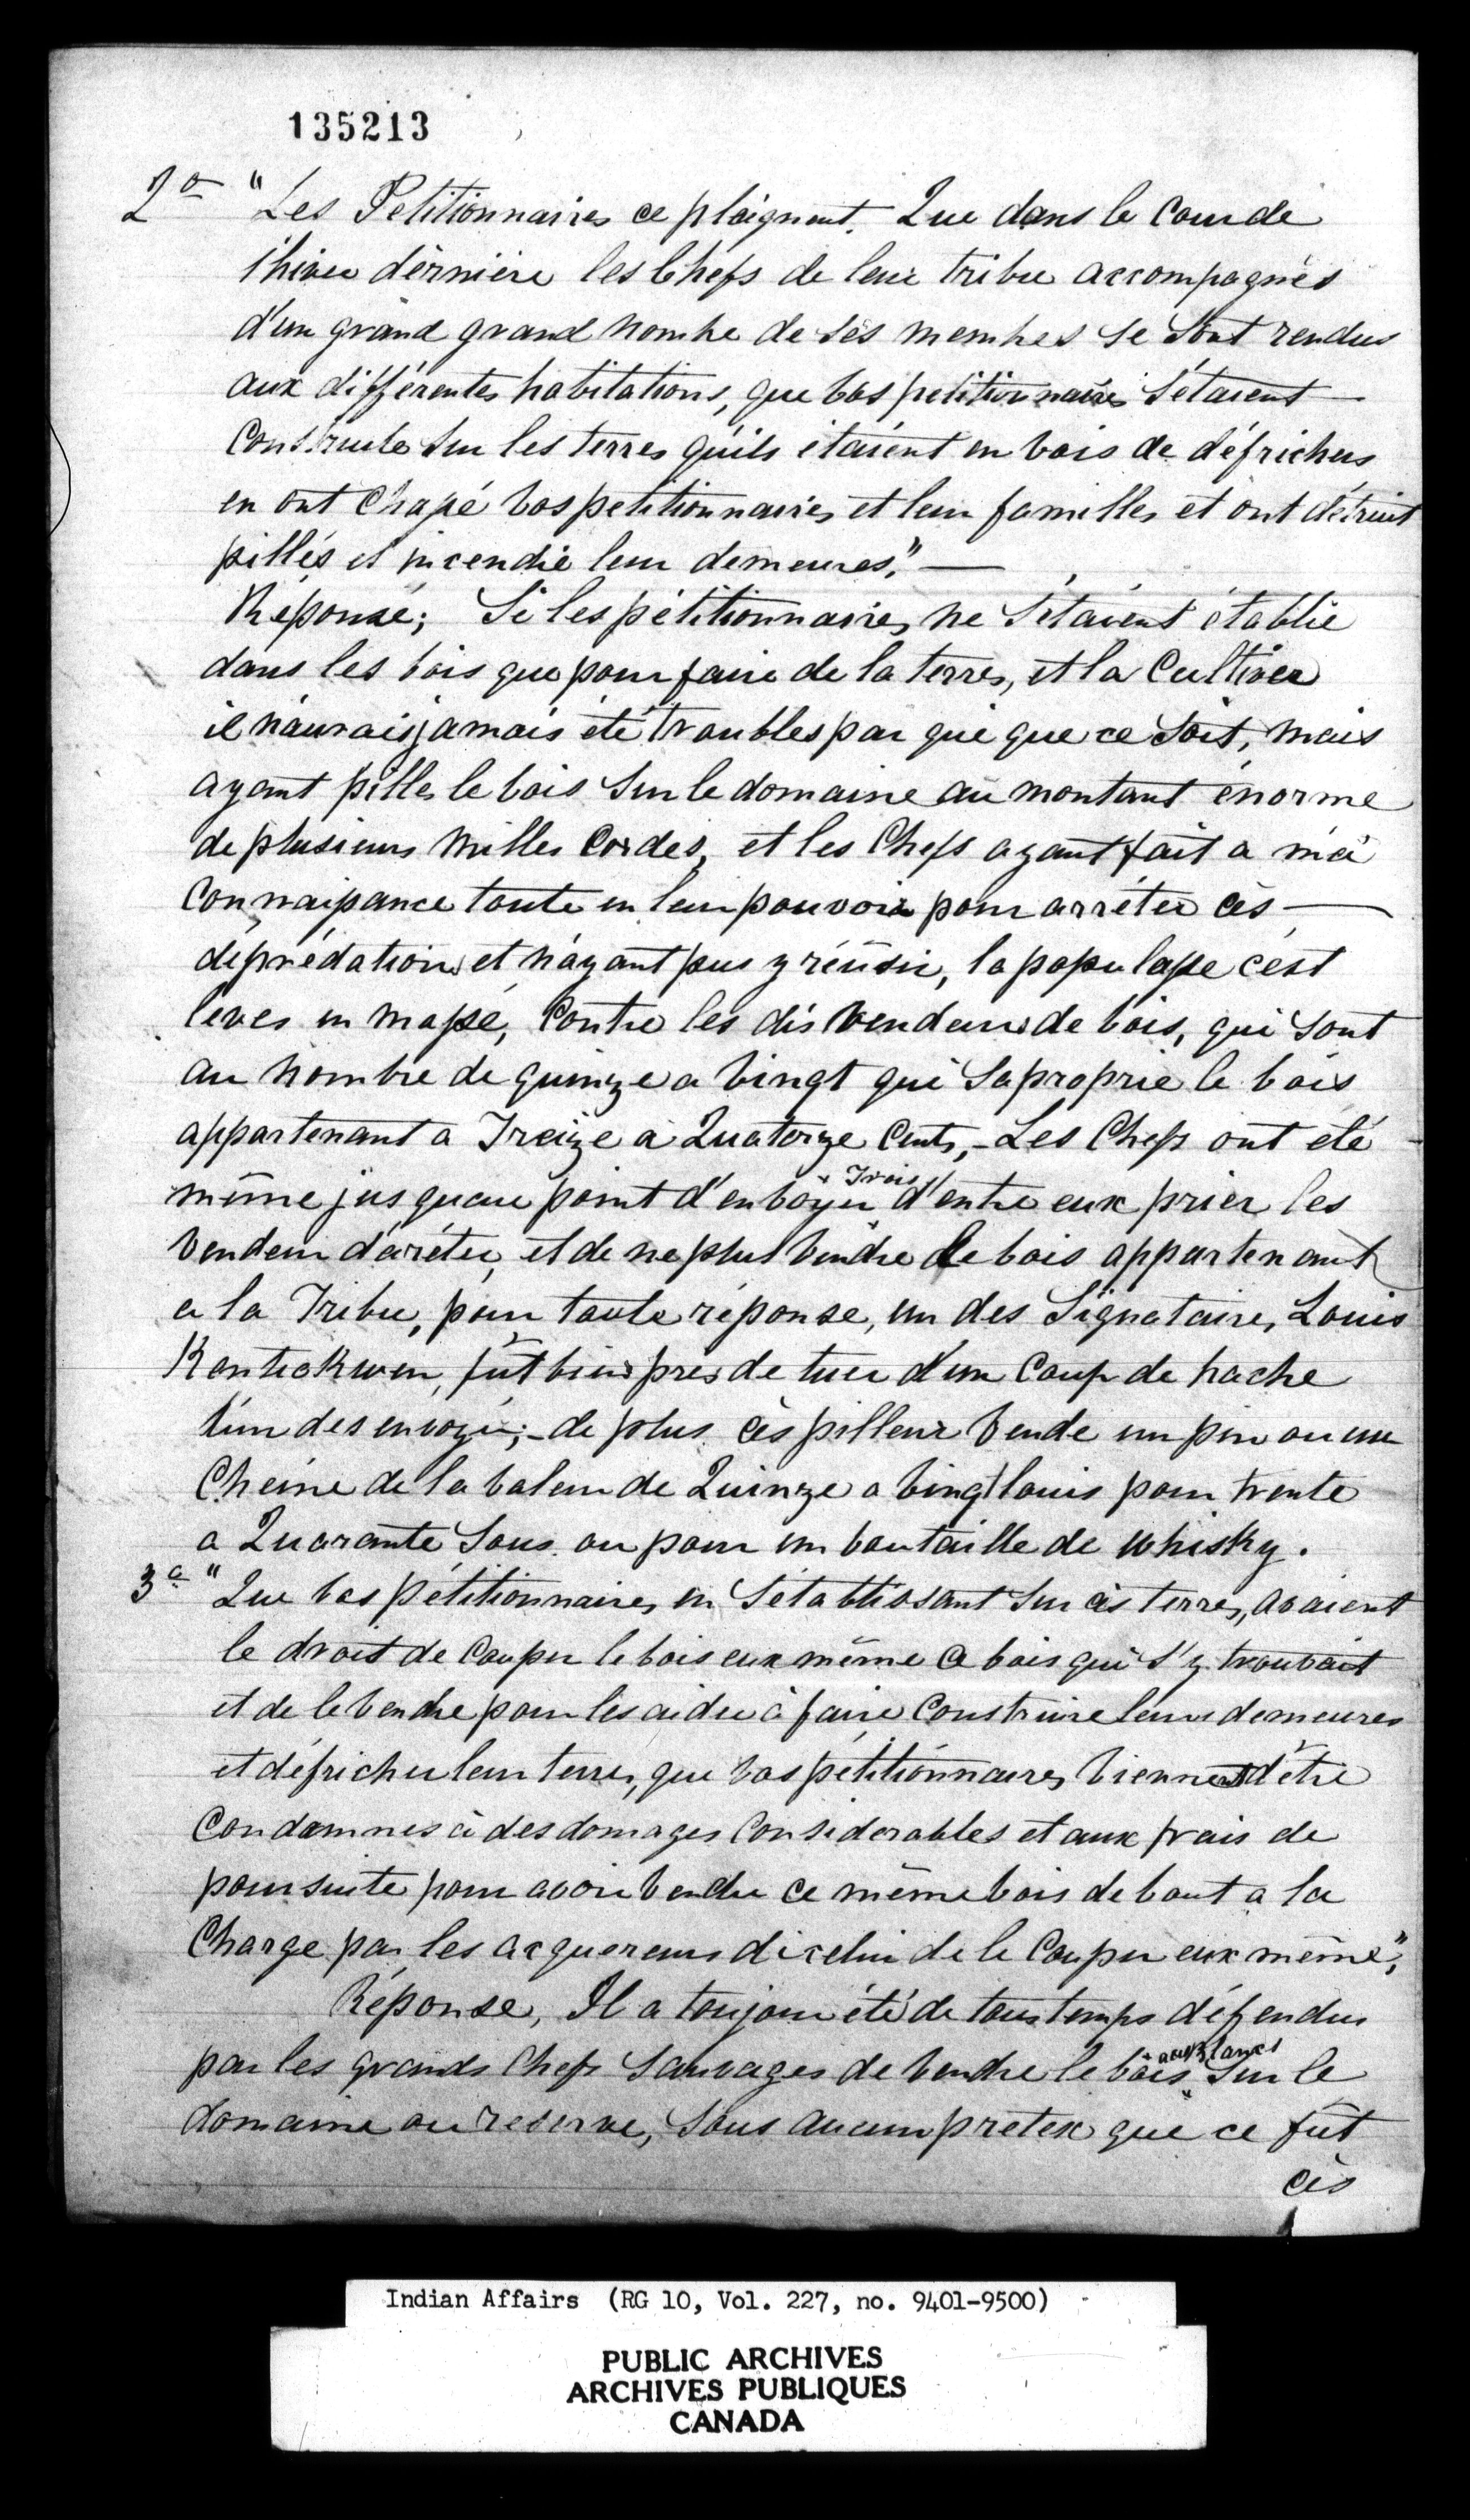 135213
2o "Les Petitionnaires ce plaignent. Que dans le cour de
l'hiver dèrnière les Chefs de leur tribu accompagnés
d'un grànd grand nombre de sès membres se sont rendus
aux différentes habitations, que vos petitionnaires s'étaient
Construite sur les terres qu'ils étaient en vois de défricher
en ont Chassé vos petitionnaires et leur familles et ont détruit
pillés et incendié leur demeures." —
Réponse; Si les pétitionnaires ne s'étaient établie
dans les bois que pour faire de la terres, et la Cultiver
il n'aurais jamais été troubles par qui que ce soit, mais
ayant pilles le bois sur le domaine au montant énorme
de plusieurs milles Cordes, et les Chefs ayant fait a mà
Connaissance toute en leur pouvoir pour arrêter cès —
déprédations et n'ayant pus y réussir, la populasse c'est
levés en massé, Contre les dis vendeurs de bois, qui sont
au nombre de quinze a vingt qui saproprie le bois
appartenant a Treize a Quatorze Cents,- Les Chefs ont été
même jusquau point d'envoyer Trois d'entre eux prier les
vendeur d'arêter, et de ne plus vendre le bois appartenant
a la Tribu, pour toute réponse, un des Signataire, Louis
Kentiokwen, fût bien pres de tuer d'un Coup de hache
l'un des envoyé;- de plus cès pilleur vende un pin ou un
Cheine de la valeur de Quinze a vingt louis pour trente
a Quarante Sous ou pour un boutaille de whisky.
3o "Que vos pétitionnaires en s'établissant sur cès terres, avaient
le droit de Couper le bois eux même ce bois qui s'y trouvait
et de le vendre pour les aider à faire Construire leurs demeures
et défricher leur terres, que vos pétitionnaires viennent d'être
Condamnes à des domages Considerables et aux frais de
poursuite pour avoir vendu ce même bois debout a la
Charge par les acquereurs dicelui de le Couper eux même",
Réponse, Il a toujour été de tous temps défendus
par les grands Chefs Sauvages de vendre le bois aux Blancs sur le
domaine ou reserve, Sous aucun pretex que ce fût
cès
Indian Affairs (RG 10, Vol. 227, no. 9401-9500)
PUBLIC ARCHIVES
ARCHIVES PUBLIQUES
CANADA